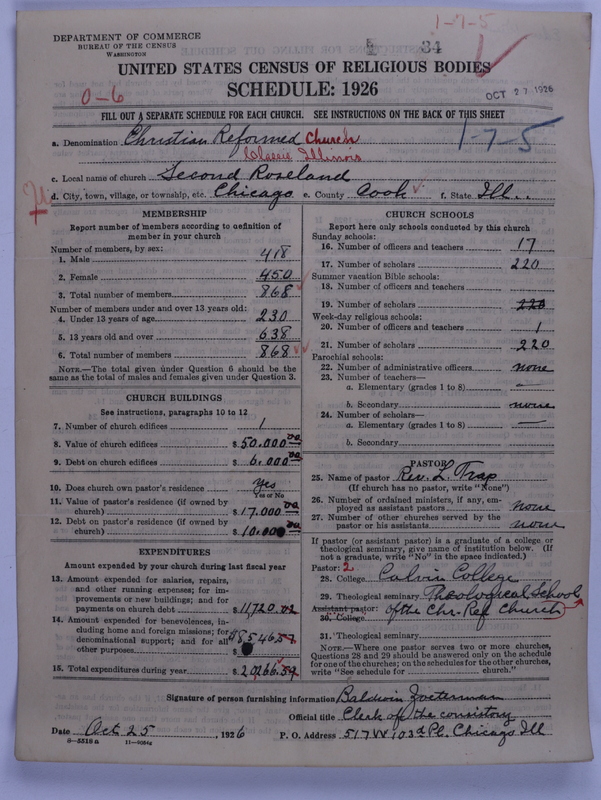 1-7-5
DEPARTMENT OF COMMERCE
BUREAU OF THE CENSUS
WASHINGTON
34
UNITED STATES CENSUS OF RELIGIOUS BODIES
SCHEDULE: 1926
0-6
OCT 27 1926
FILL OUT A SEPARATE SCHEDULE FOR EACH CHURCH. SEE INSTRUCTIONS ON THE BACK OF THIS SHEET
1-7-5
a. Denomination Christian Reformed Church
Classis Illinois
c. Local name of church Second Roseland
d. City, town, village, or township, etc. Chicago e. County Cook f. State Ill.
MEMBERSHIP
Report number of members according to definition of member in your church
Number of members, by sex:
1. Male 418
2. Female 450
3. Total number of members 868
Number of members under and over 13 years old:
4. Under 13 years of age 230
5. 13 years old and over 638
6. Total number of members 868
NOTE.—The total given under Question 6 should be the same as the total of males and females given under Question 3.
CHURCH BUILDINGS
See instructions, paragraphs 10 to 12
7. Number of church edifices 1
8. Value of church edifices $50,000.00
9. Debt on church edifices $6,000.00
10. Does church own pastor's residence Yes
Yes or No
11. Value of pastor's residence (if owned by church) $17,000.00
12. Debt on pastor's residence (if owned by church) $10,000.00
EXPENDITURES
Amount expended by your church during last fiscal year
13. Amount expended for salaries, repairs, and other running expenses; for improvements or new buildings; and for payments on church debt $11,720.02
14. Amount expended for benevolences, including home and foreign missions; for denominational support; and for all other purposes $8546.57
15. Total expenditures during year $20266.59
CHURCH SCHOOLS
Report here only schools conducted by this church
Sunday schools:
16. Number of officers and teachers 17
17. Number of scholars 220
Summer vacation Bible schools:
18. Number of officers and teachers
19. Number of scholars 220
Week-day religious schools:
20. Number of officers and teachers 1
21. Number of scholars 220
Parochial schools:
22. Number of administrative officers none
23. Number of teachers—
a. Elementary (grades 1 to 8) —
b. Secondary none
24. Number of scholars—
a. Elementary (grades 1 to 8) —
b. Secondary
PASTOR
25. Name of pastor Rev. L. Trap
(If church has no pastor, write "None")
26. Number of ordained ministers, if any, employed as assistant pastors none
27. Number of other churches served by the pastor or his assistants none
If pastor (or assistant pastor) is a graduate of a college or theological seminary, give name of institution below. (If not a graduate, write "No" in the space indicated.)
Pastor: 2
28. College Calvin College
29. Theological seminary Theological School
Assistant pastor: of the Chr. Ref. Church
30. College
31. Theological seminary
NOTE.—Where one pastor serves two or more churches, Questions 28 and 29 should be answered only on the schedule for one of the churches; on the schedules for the other churches, write "See schedule for ........ church."
Signature of person furnishing information Baldwin Zoeterman
Official title Clerk of the consistory
Date Oct 25, 1926 P. O. Address 517 W 103d Pl. Chicago Ill
8—5518 a 11—9064g